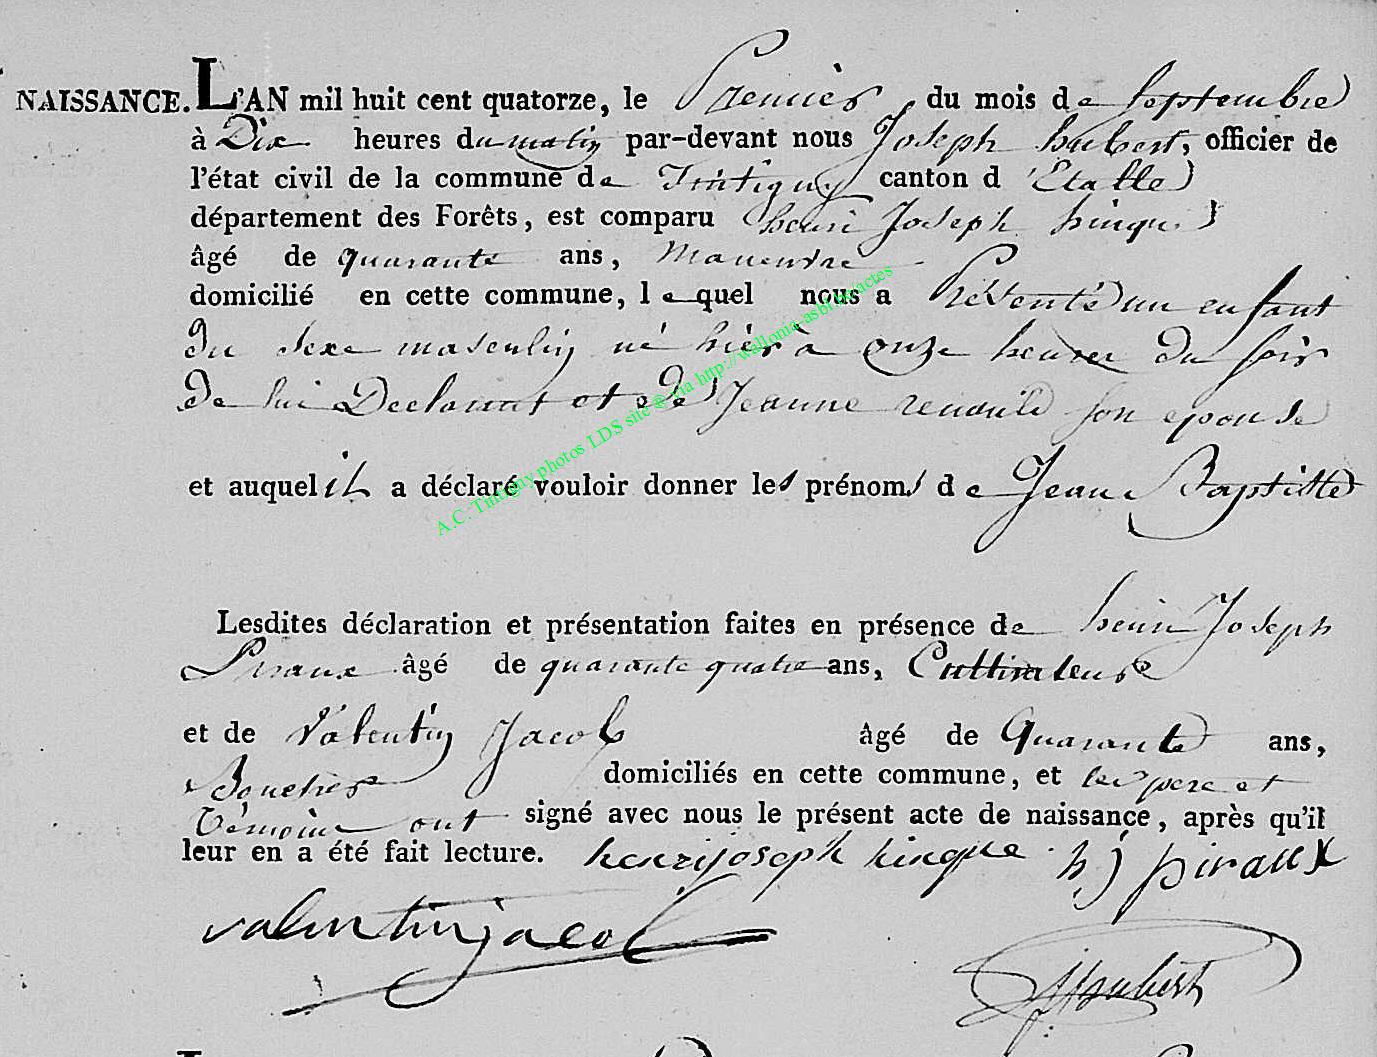 NAISSANCE. L'AN mil huit cent quatorze, le Premier du mois de septembre
à Dix heures du matin par-devant nous Joseph hubert, officier de
l'état civil de la commune de Tintigny canton d'Etalle
département des Forêts, est comparu henri Joseph hinque
âgé de quarante ans, Maneuvre
domicilié en cette commune, lequel nous a Présenté un enfant
Du Sexe masculin né hier à onze heures Du soir
De lui Declarant et de Jeanne son epouse
et auquel il a déclaré vouloir donner les prénoms de Jean Baptiste
Lesdites déclaration et présentation faites en présence de henri Joseph
Piraux âgé de quarante quatre ans, Cultivateur
et de Valentin Jacob âgé de Quarante ans,
Boucher domiciliés en cette commune, et les pere et
Témoins ont signé avec nous le présent acte de naissance, après qu'il
leur en a été fait lecture. henri joseph hinque h j piraux
valentin jacob
J Hubert
A.C. Tintigny photos LDS site @ via http://wallonia-asbl.be/actes